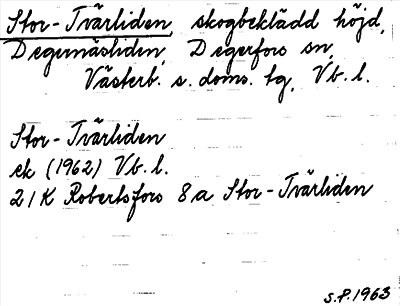 Stor-Tvärliden, skogbeklädd höjd,
Degernäsliden, Degerfors sn,
Västerb. s. doms. tg, Vb. l.
Stor-Tvärliden
ek (1962) Vb. l.
21K Robertsfors 8a Stor-Tvärliden
S.P. 1963